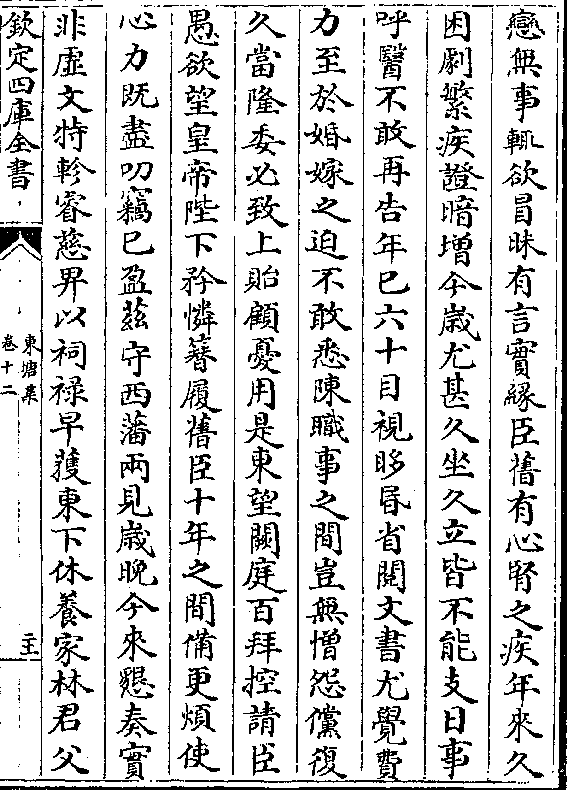 戀無事輒欲冒昧有言實緣臣舊有心腎之疾年來久
困劇繁疾證暗增今歲尤甚久坐久立皆不能支日事
呼醫不敢再告年已六十目視眵昬省閱文書尤覺費
力至於婚嫁之迫不敢悉陳職事之間豈無憎怨儻復
久當隆委必致上貽顧憂用是東望闕庭百拜控請臣
愚欲望皇帝陛下矜憐簪履舊臣十年之間備更煩使
心力既盡叨竊已盈茲守西藩兩見歲晚今來懇奏實
非虛文特軫睿慈畀以祠禄早獲東下休養家林君父
欽定四庫全書
東塘集
卷十二